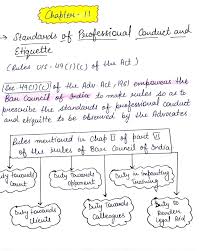 Chapter - 11
→ Standards of Professional Conduct and
Etiquette
(Rules U/S - 49(1)(c) of the Act)
Sec 49(1)(c) of the Adv. Act, 1961 empowers the
Bar Council of India to make rules so as to
prescribe the standards of professional conduct
and etiquette to be observed by the Advocates
Rules mentioned in Chap II of part VI
of the rules of Bar Council of India
Duty towards
Court
Duty towards
Opponent
Duty in imparting
Training
Duty towards
clients
Duty towards
Colleagues
Duty to
Render
legal Aid